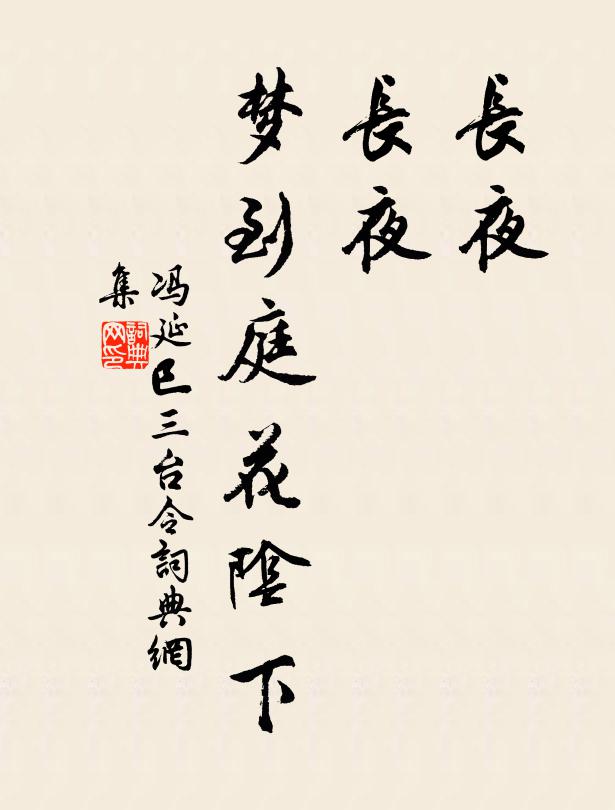 長夜
長夜
梦到庭花陰下
冯延巳三台令詞典網
集
詞典網印